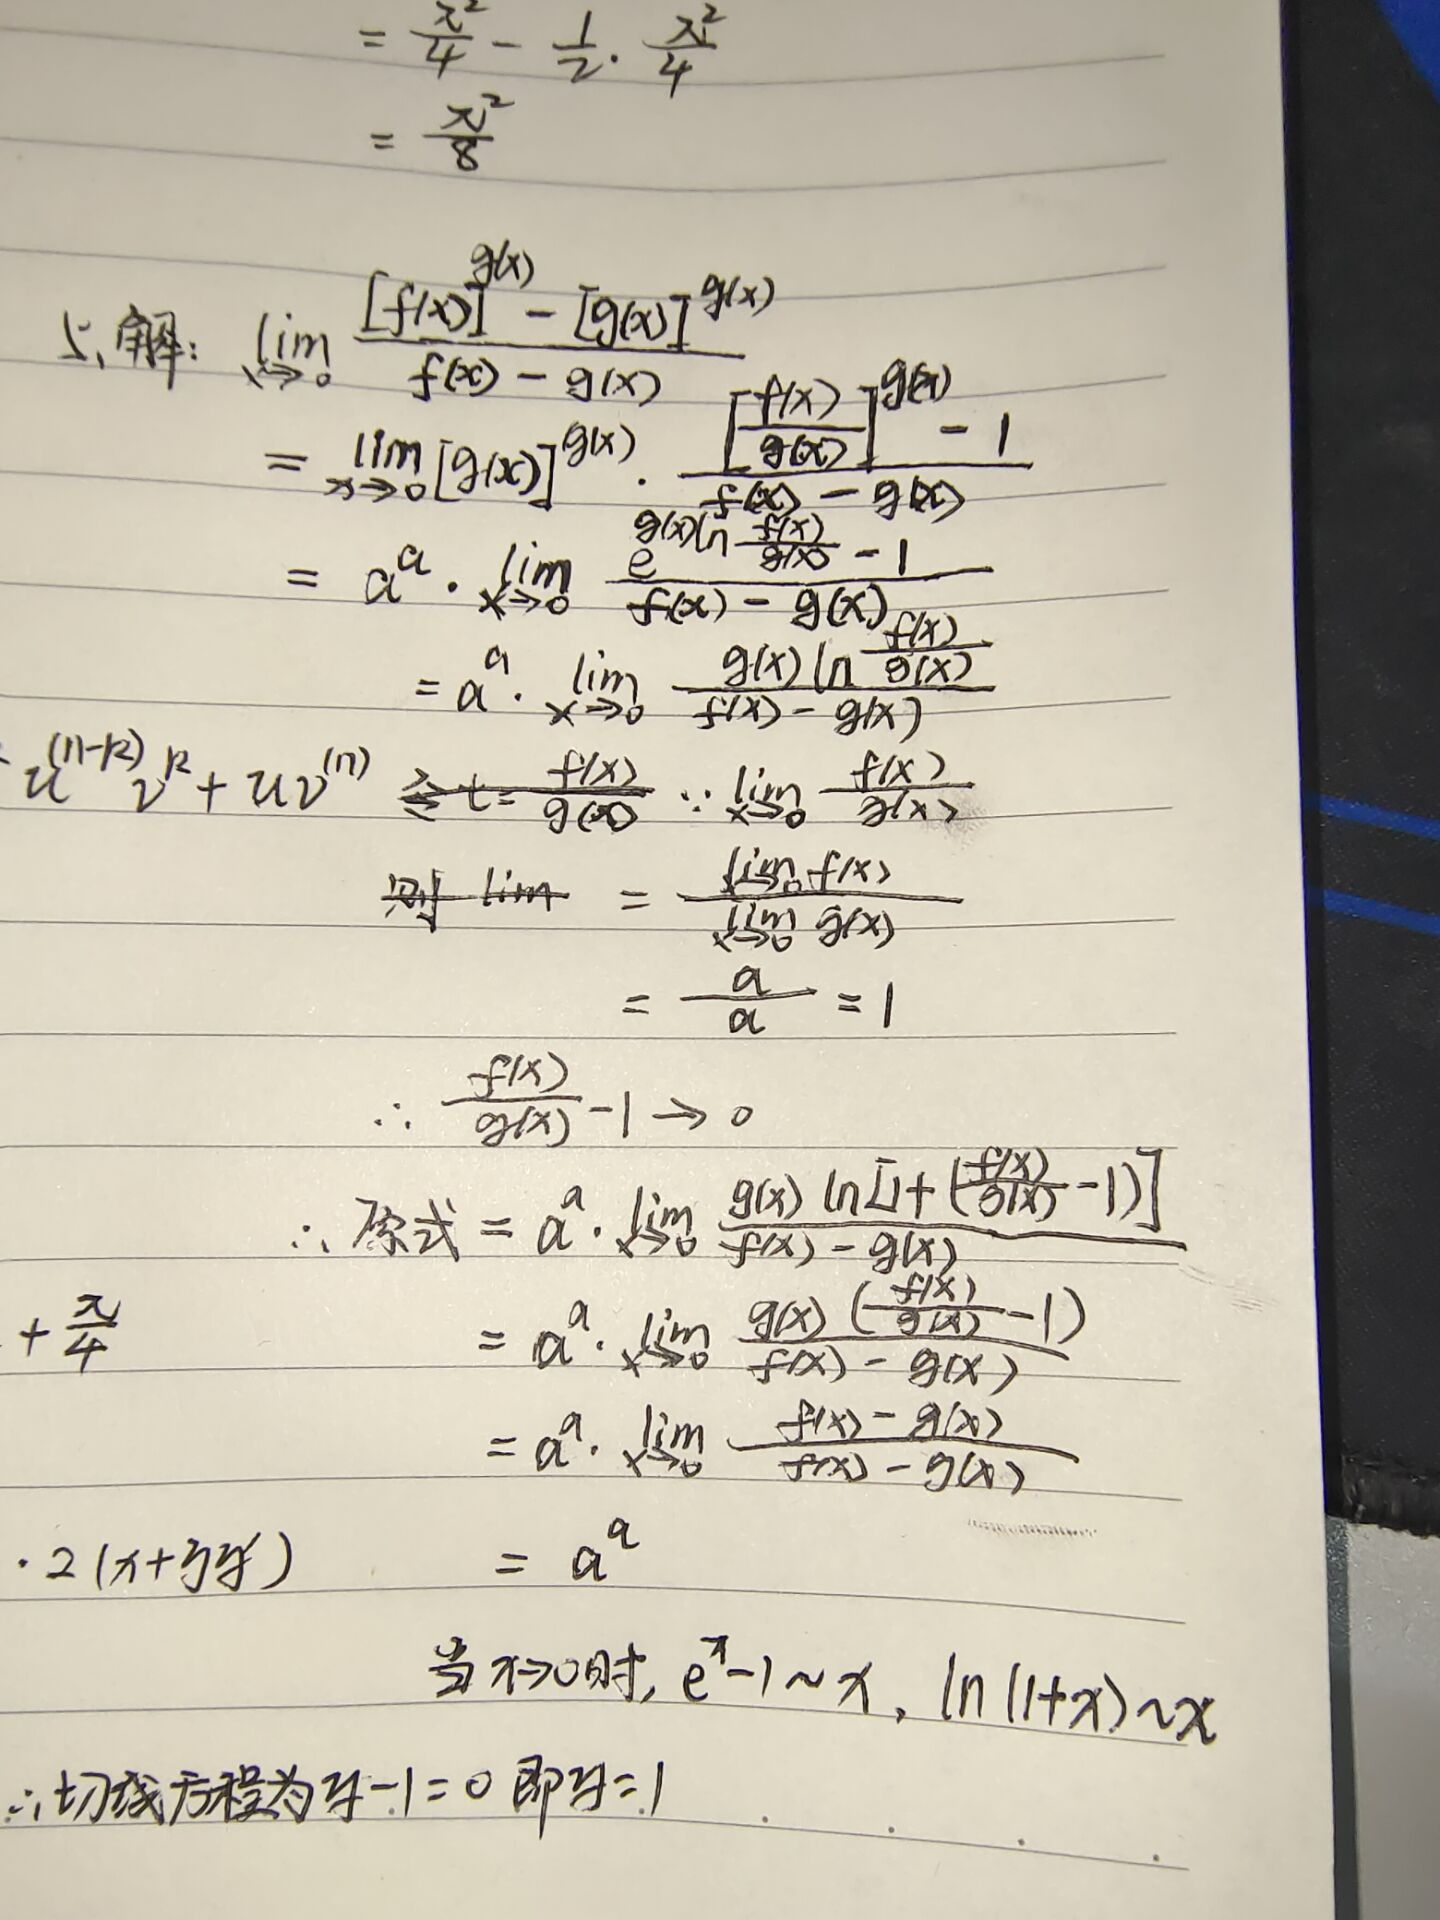 = π²/4 - 1/2 · π²/4
= π²/8
5、解: lim x→0 ([f(x)]^g(x) - [g(x)]^g(x)) / (f(x) - g(x))
= lim x→0 [g(x)]^g(x) · ([f(x)/g(x)]^g(x) - 1) / (f(x) - g(x))
= a^a · lim x→0 (e^(g(x) ln f(x)/g(x)) - 1) / (f(x) - g(x))
= a^a · lim x→0 (g(x) ln f(x)/g(x)) / (f(x) - g(x))
u^(n-k) v^k + u v^(n) t = f(x)/g(x) ∵ lim x→0 f(x)/g(x)
则 lim = (lim x→0 f(x)) / (lim x→0 g(x))
= a/a = 1
∴ f(x)/g(x) - 1 → 0
∴ 原式 = a^a · lim x→0 (g(x) ln[1 + (f(x)/g(x) - 1)]) / (f(x) - g(x))
+ π/4 = a^a · lim x→0 (g(x) (f(x)/g(x) - 1)) / (f(x) - g(x))
= a^a · lim x→0 (f(x) - g(x)) / (f(x) - g(x))
· 2(x + yy′) = a^a
当 x→0时, e^x - 1 ~ x, ln(1+x) ~ x
∴ 切线方程为 y - 1 = 0 即 y = 1